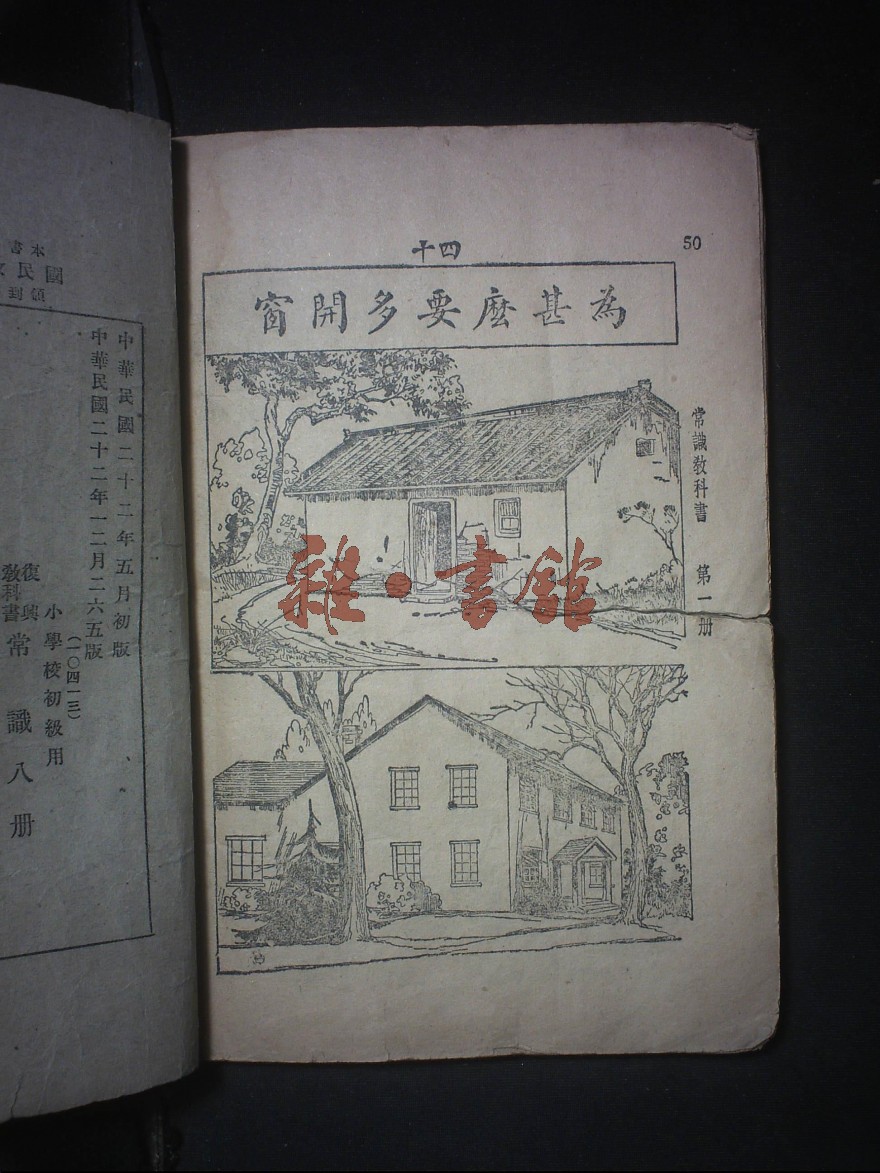 50
四十
為甚麼要多開窗
常識教科書 第一册
雜·書館
本書
國民
領到
中華民國二十二年五月初版
中華民國二十二年一二月二六五版
(一〇四一三)
小學校初級用
復興
教科書
常識八册